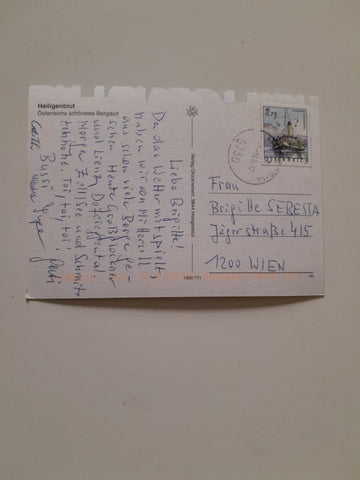 Heiligenblut
Österreichs schönstes Bergdorf
Liebe Brigitte!
Da das Wetter mitspielt,
haben wir von Mittersill
aus schon viele Berge ge-
sehen. Heute Großglockner
und Lienz, Defereggental.
Morgen Zell/See und Schmitte
höhe. Toi, toi, toi!
Bussi
Verlag Glocknerwirt, 9844 Heiligenblut
1900 771
€ 0,75
ÖSTERREICH
9780
Frau
Brigitte SEBESTA
Jägerstraße 4/5
1200 WIEN